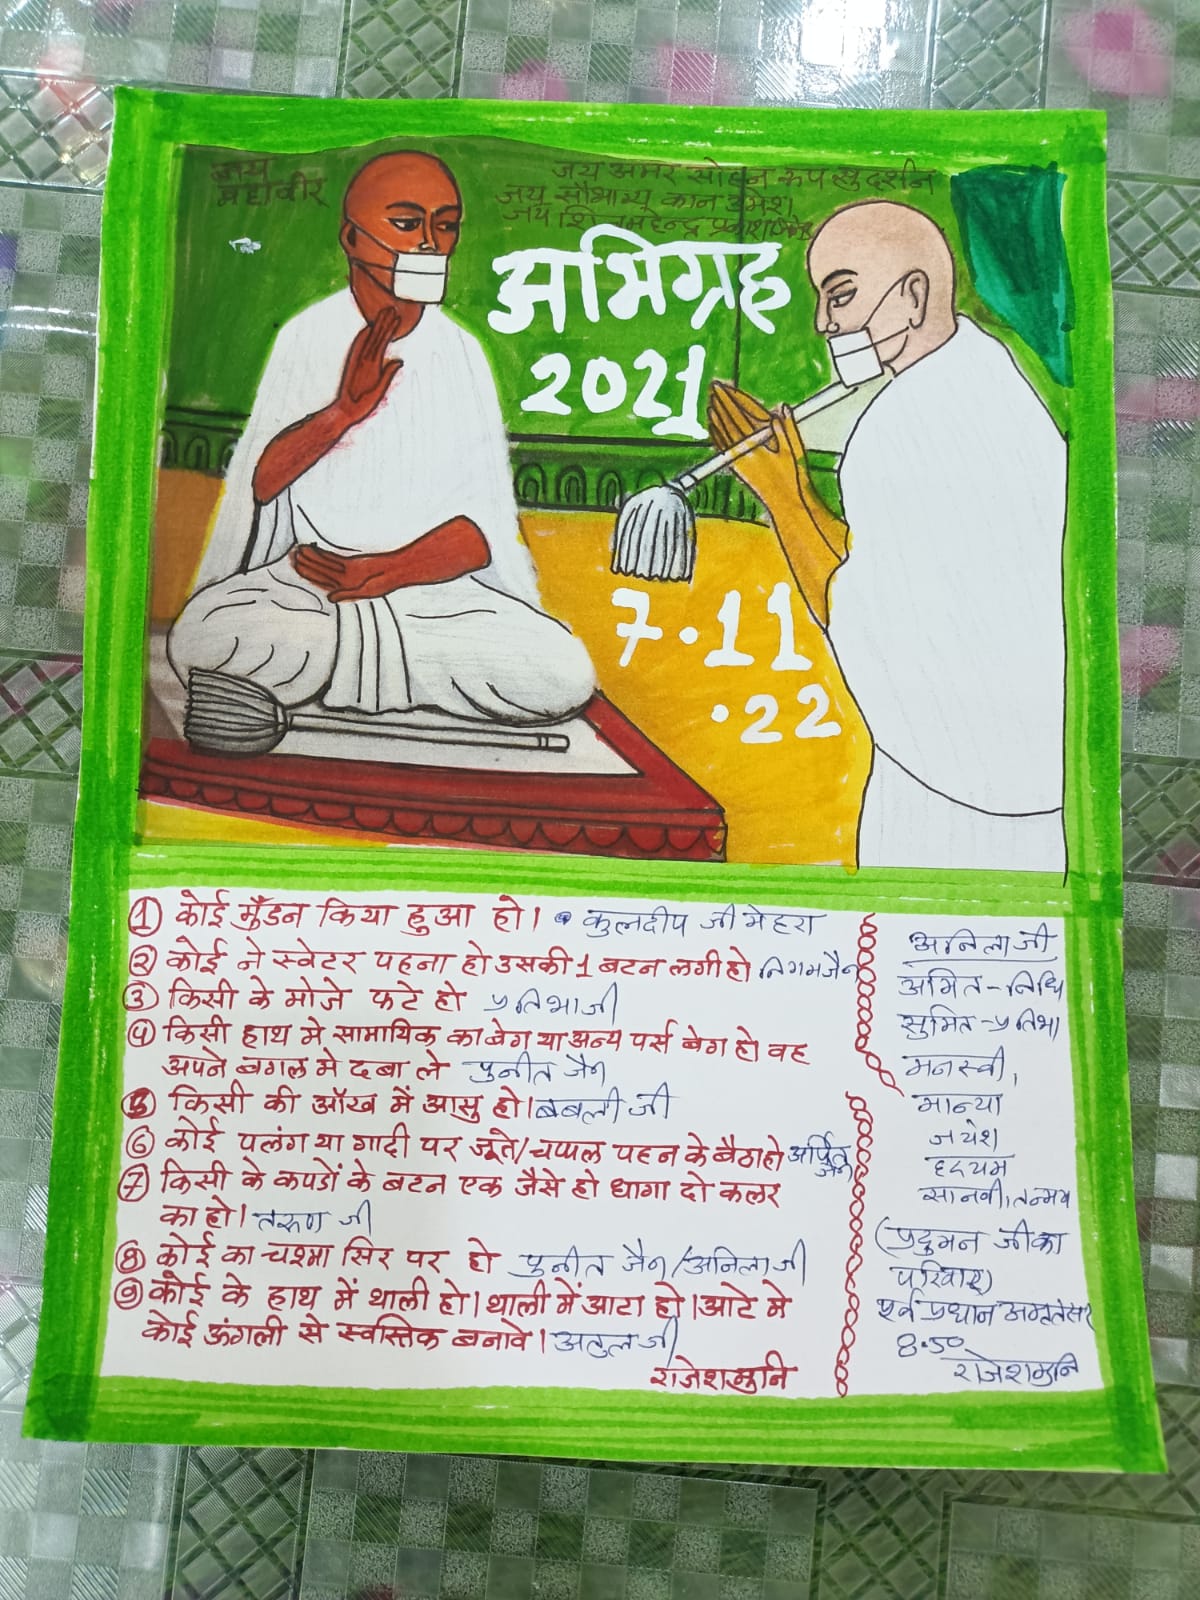 जय
महावीर
जय अमर सोहन रूप सुदर्शन
जय सौभाग्य कान उमेश
जय शिव महेन्द्र
अभिग्रह
2021
7.11
.22
① कोई मुँडन किया हुआ हो। कुलदीप जी मेहरा
② कोई ने स्वेटर पहना हो उसकी 1 बटन लगी हो निगम जैन
③ किसी के मोजे फटे हो प्रतिभाजी
④ किसी हाथ मे सामायिक का बेग या अन्य पर्स बेग हो वह
अपने बगल मे दबा ले पुनीत जैन
⑤ किसी की आँख में आसु हो। बबली जी
⑥ कोई पलंग या गादी पर जूते/चप्पल पहन के बैठा हो अर्पित जैन
⑦ किसी के कपडों के बटन एक जैसे हो धागा दो कलर
का हो। तरुण जी
⑧ कोई का चश्मा सिर पर हो पुनीत जैन/अनिलाजी
⑨ कोई के हाथ में थाली हो। थाली में आटा हो। आटे मे
कोई ऊंगली से स्वस्तिक बनावे। अतुल जी
राजेशमुनि
अनिलाजी
अमित-निधि
सुमित-प्रतिभा
मनस्वी,
मान्या
जयेश
हृदयम
सानवी, तन्मय
(प्रदुमन जी का
परिवार)
पूर्व प्रधान अमृतसर
8.50
राजेशमुनि